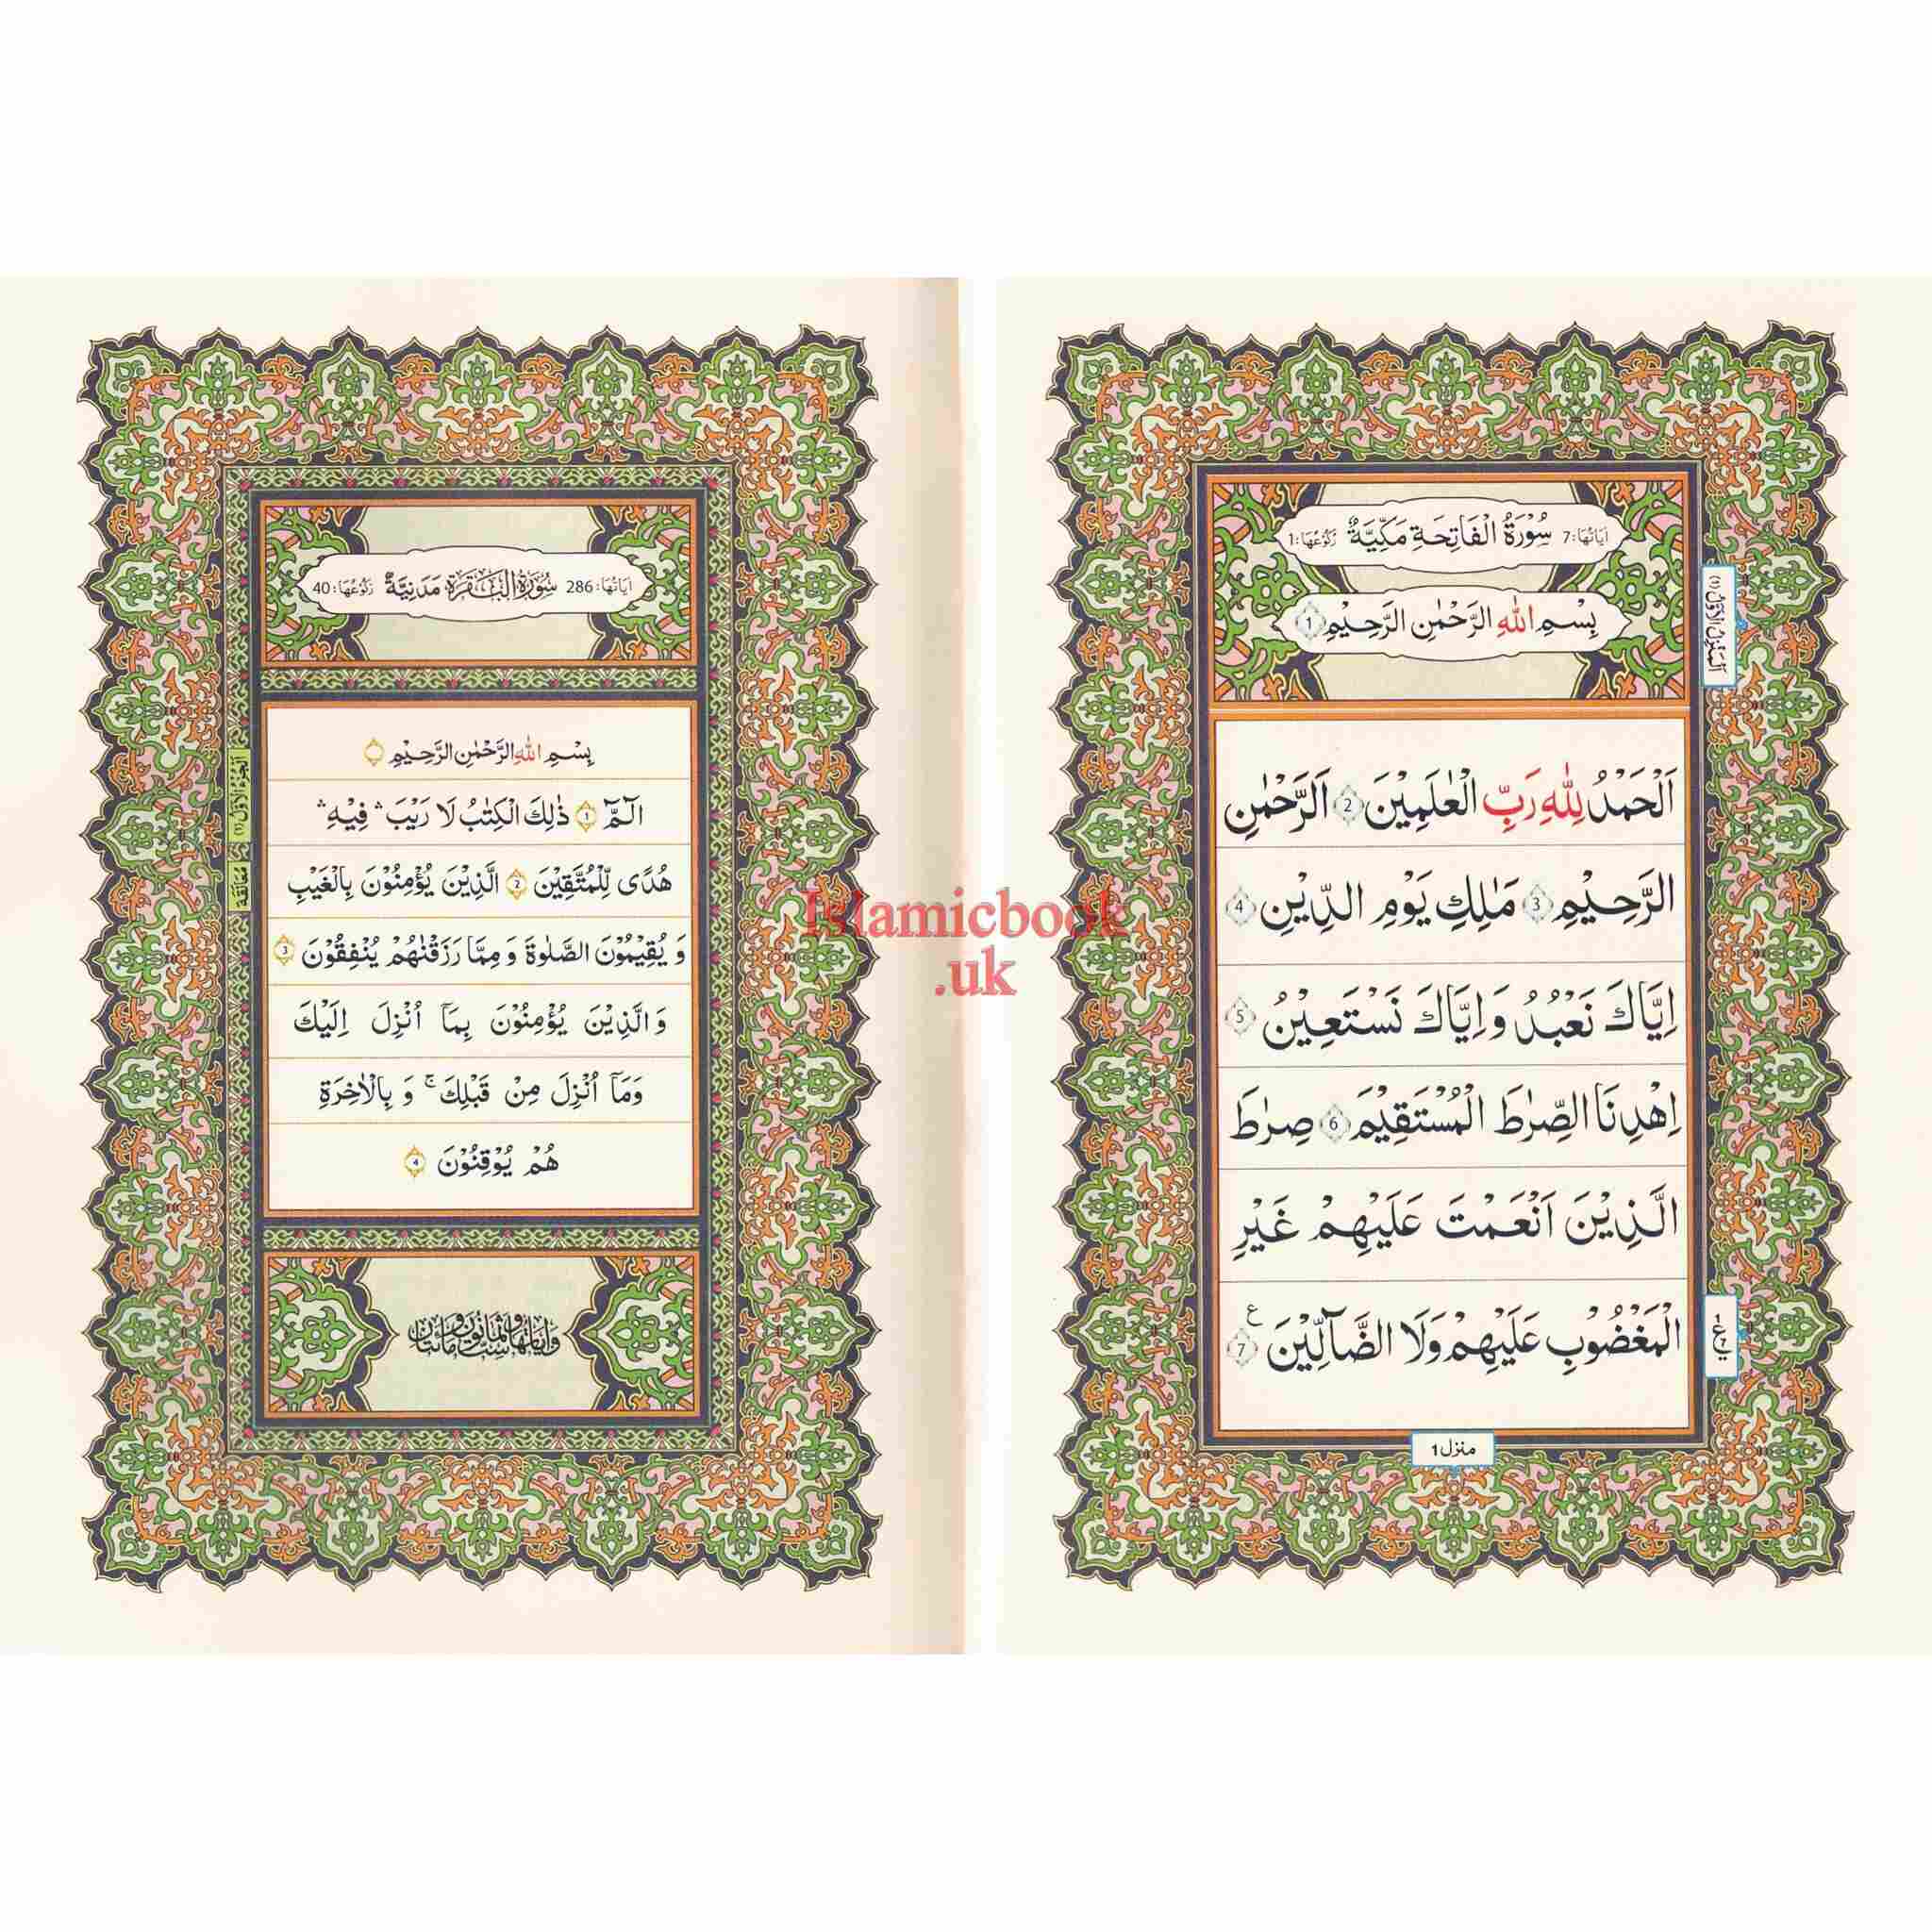 سُوْرَةُ الْفَاتِحَةِ مَكِّيَّةٌ
اٰيَاتُهَا:7
رُكُوْعُهَا:1
بِسْمِ اللّٰهِ الرَّحْمٰنِ الرَّحِيْمِ 1
اَلْحَمْدُ لِلّٰهِ رَبِّ الْعٰلَمِيْنَ 2 الرَّحْمٰنِ
الرَّحِيْمِ 3 مٰلِكِ يَوْمِ الدِّيْنِ 4
اِيَّاكَ نَعْبُدُ وَاِيَّاكَ نَسْتَعِيْنُ 5
اِهْدِنَا الصِّرٰطَ الْمُسْتَقِيْمَ 6 صِرٰطَ
الَّذِيْنَ اَنْعَمْتَ عَلَيْهِمْ غَيْرِ
الْمَغْضُوْبِ عَلَيْهِمْ وَلَا الضَّآلِّيْنَ 7 ع
اَلْمَنْزِلُ الْاَوَّلُ (1)
منزل 1
اٰيَاتُهَا: 286
سُوْرَةُ الْبَقَرَةِ مَدَنِيَّةٌ
رُكُوْعُهَا: 40
بِسْمِ اللّٰهِ الرَّحْمٰنِ الرَّحِيْمِ
الٓمّٓ 1 ذٰلِكَ الْكِتٰبُ لَا رَيْبَ ۛ فِيْهِ ۛ
هُدًى لِّلْمُتَّقِيْنَ 2 الَّذِيْنَ يُؤْمِنُوْنَ بِالْغَيْبِ
وَ يُقِيْمُوْنَ الصَّلٰوةَ وَ مِمَّا رَزَقْنٰهُمْ يُنْفِقُوْنَ 3
وَالَّذِيْنَ يُؤْمِنُوْنَ بِمَآ اُنْزِلَ اِلَيْكَ
وَمَآ اُنْزِلَ مِنْ قَبْلِكَ ۚ وَ بِالْاٰخِرَةِ
هُمْ يُوْقِنُوْنَ 4
اَلْجُزْءُ الْاَوَّلُ (1)
مُعَانَقَة
واياتها مائتان وست وثمانون
Islamicbook
.uk